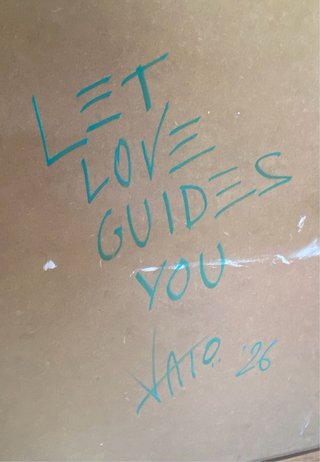 LET
LOVE
GUIDES
YOU
KATO '26